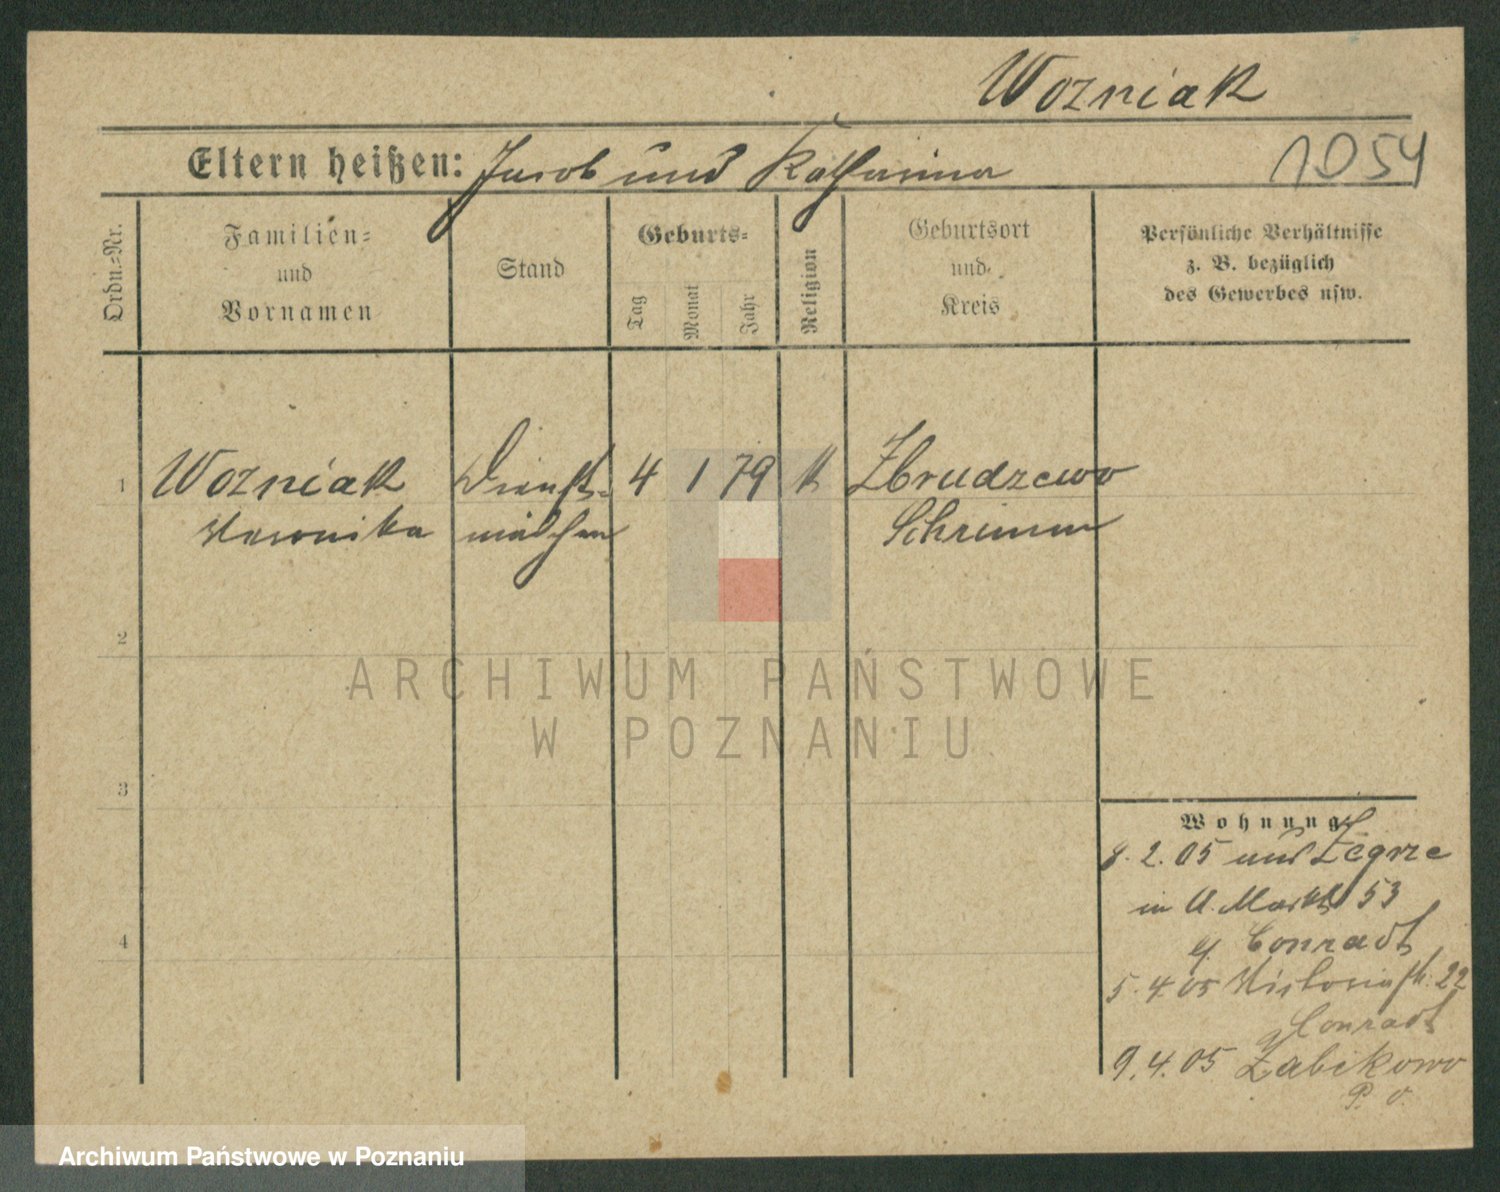 Wozniak
Eltern heißen: Jacob und Katharina
1054
Ordn.-Nr.
Familien-
und
Vornamen
Stand
Geburts-
Tag
Monat
Jahr
Religion
Geburtsort
und
Kreis
Persönliche Verhältnisse
z. B. bezüglich
des Gewerbes usw.
1 Wozniak Dienst- 4 1 79 k Zbrudzewo
Veronika mädchen Schrimm
2
3
4
ARCHIWUM PAŃSTWOWE
W POZNANIU
Wohnung
8. 2. 05 aus Zegrze
in A. Markt 53
b/ Conradt
5. 4. 05 Viktoriastr. 22
Conradt
9. 4. 05 Zabikowo
P. O.
Archiwum Państwowe w Poznaniu